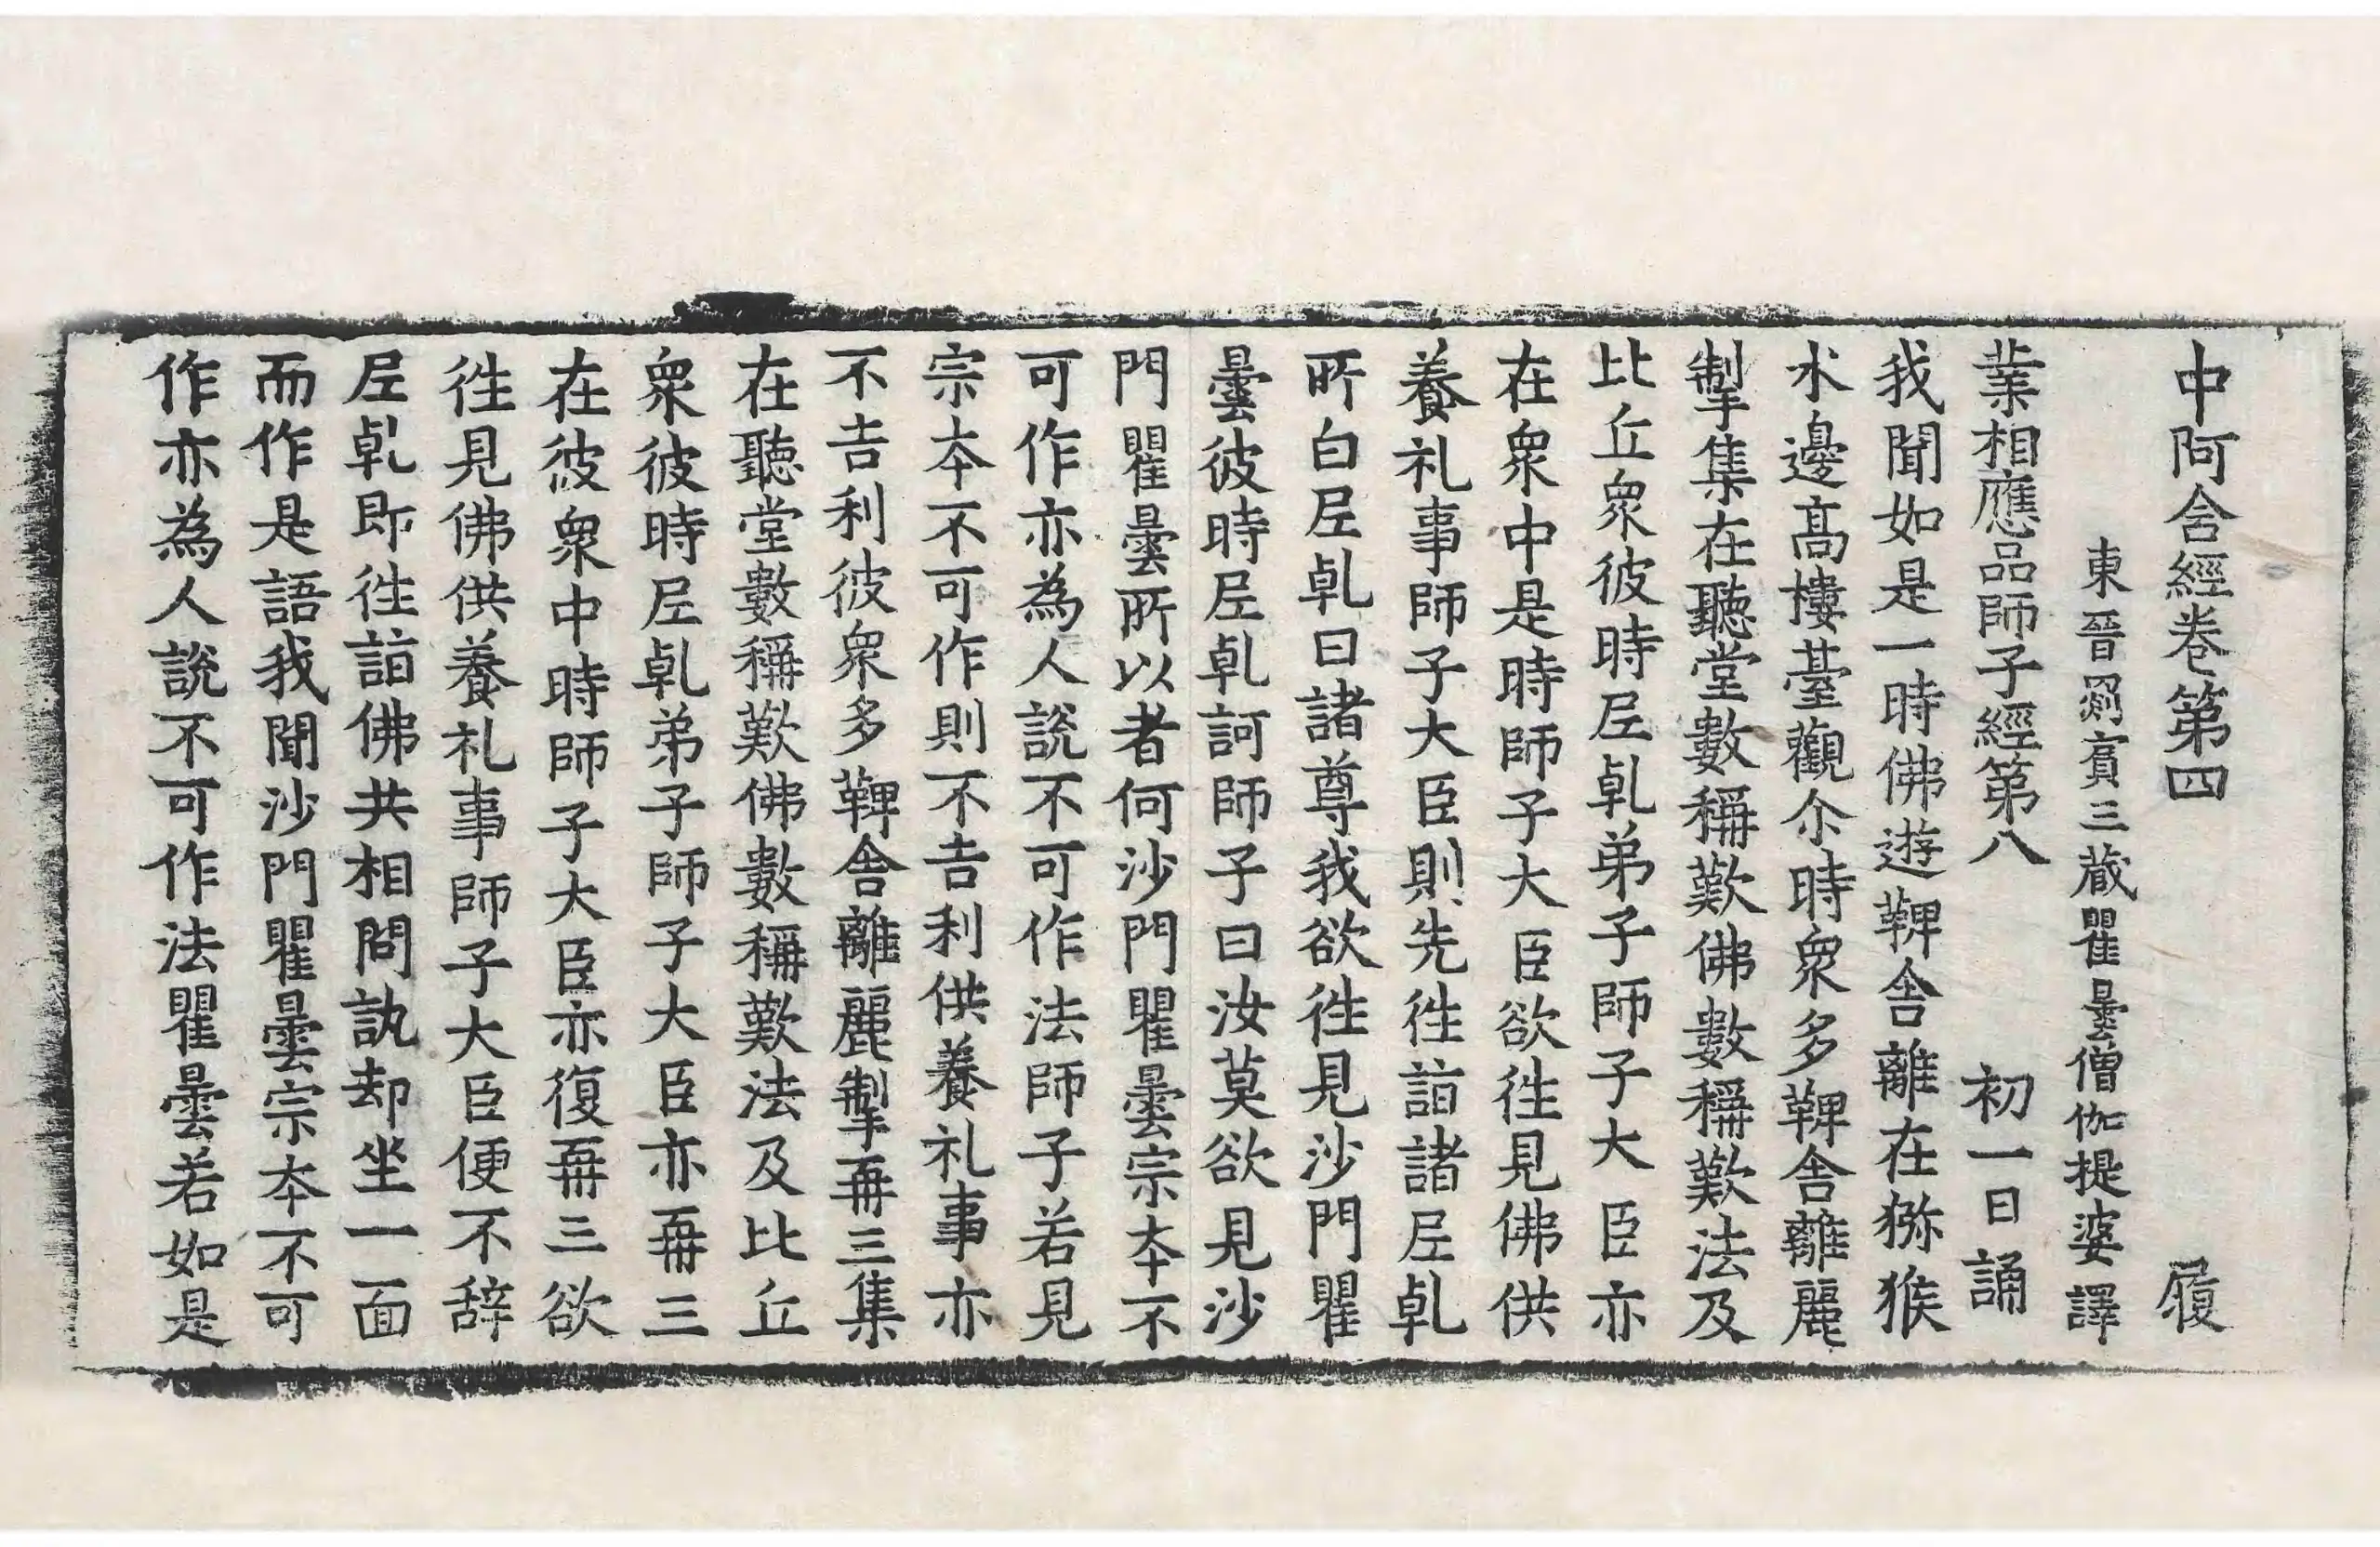 中阿含經卷第四 履
東晉罽賓三藏瞿曇僧伽提婆譯
業相應品師子經第八 初一日誦
我聞如是一時佛遊鞞舍離在獼猴
水邊高樓臺觀尒時衆多鞞舍離麗
掣集在聽堂數稱歎佛數稱歎法及
比丘衆彼時尼乹弟子師子大臣亦
在衆中是時師子大臣欲徃見佛供
養礼事師子大臣則先徃詣諸尼乹
所白尼乹曰諸尊我欲徃見沙門瞿
曇彼時尼乹訶師子曰汝莫欲見沙
門瞿曇所以者何沙門瞿曇宗夲不
可作亦為人說不可作法師子若見
宗夲不可作則不吉利供養礼事亦
不吉利彼衆多鞞舍離麗掣再三集
在聽堂數稱歎佛數稱歎法及比丘
衆彼時尼乹弟子師子大臣亦再三
在彼衆中時師子大臣亦復再三欲
徃見佛供養礼事師子大臣便不辞
尼乹即徃詣佛共相問訊却坐一面
而作是語我聞沙門瞿曇宗夲不可
作亦為人說不可作法瞿曇若如是